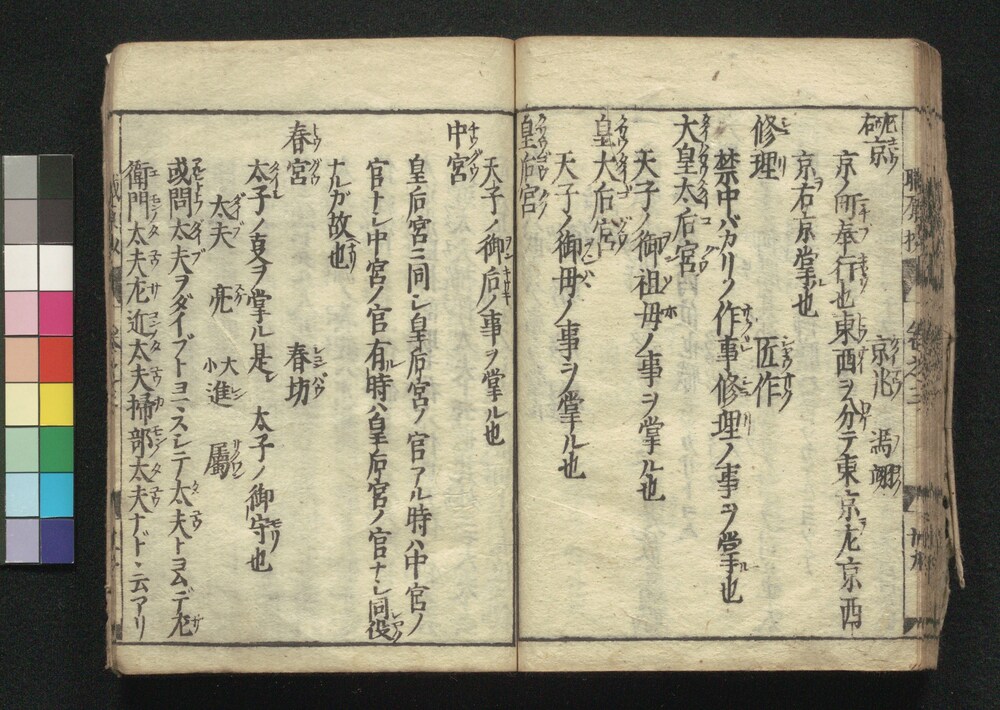 京兆 馮翊
京ノ町奉行也東西ヲ分テ東京左京西
京右京掌ル也
修理 匠作
禁中バカリノ作事修理ノ事ヲ掌ル也
大皇太后宮
天子ノ御祖母ノ事ヲ掌ル也
皇大后宮
天子ノ御母ノ事ヲ掌ル也
皇后宮
天子ノ御后ノ事ヲ掌ル也
中宮
皇后宮ニ同シ皇后宮ノ官アル時ハ中宮ノ
官トシ中宮ノ官有時ハ皇后宮ノ官ナシ同役
ナルカ故也
春宮 春坊
太子ノ事ヲ掌ル是シ 太子ノ御守也
大夫 亮 大小進 属
或問太夫ヲダイブトヨニスレテ太夫トヨムデ左
衛門太夫左近太夫掃部太夫ナドト云アリ